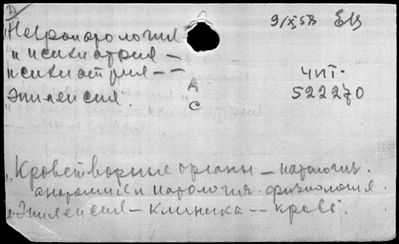 9/X 58 ЕЦ
Невропатология
и психиатрия —
психиатрия --
Эпилепсия.
A
C
чит.
522270
Кроветворные органы — патологич.
анатомия и патологич. физиология.
Эпилепсия — клиника -- кровь.